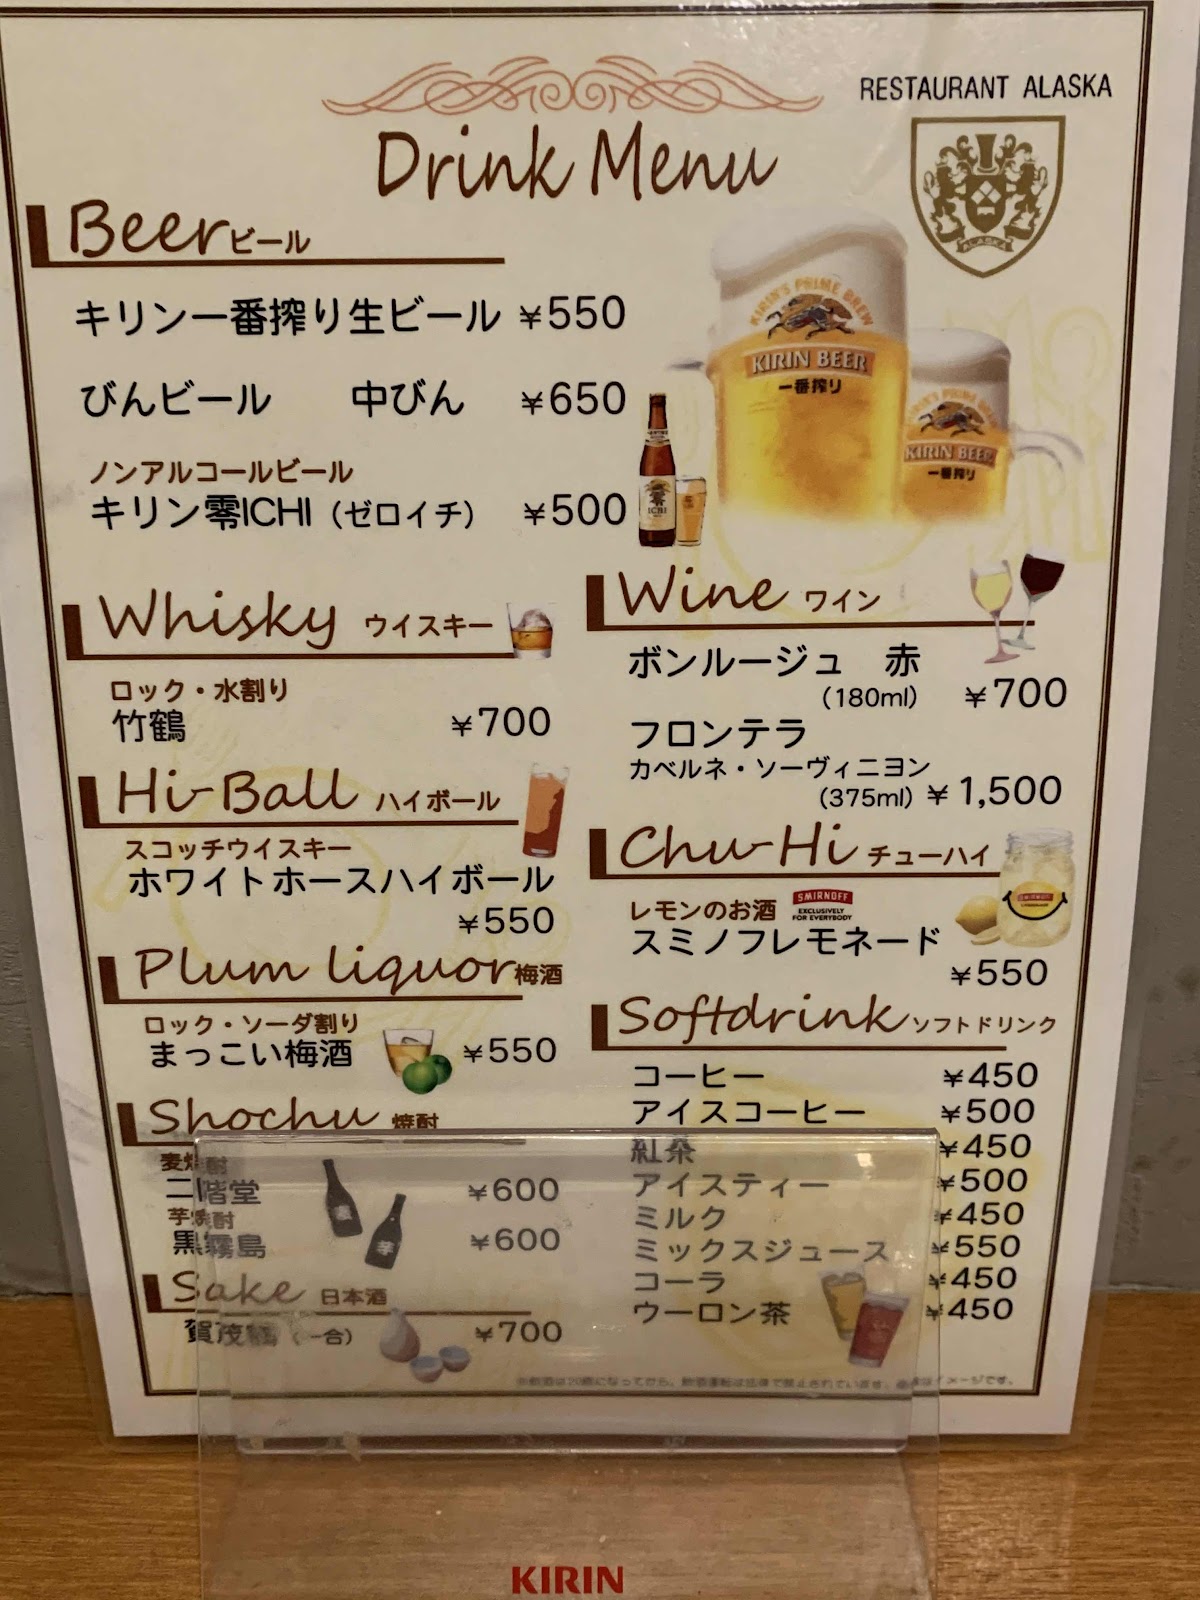 RESTAURANT ALASKA
ALASKA
Drink Menu
Beer ビール
キリン一番搾り生ビール ¥550
びんビール 中びん ¥650
ノンアルコールビール
キリン零ICHI（ゼロイチ） ¥500
KIRIN'S PRIME BREW
KIRIN BEER
一番搾り
KIRIN'S PRIME BREW
KIRIN BEER
一番搾り
零
ICHI
Whisky ウイスキー
ロック・水割り
竹鶴 ¥700
Hi-Ball ハイボール
スコッチウイスキー
ホワイトホースハイボール
¥550
Plum liquor 梅酒
ロック・ソーダ割り
まっこい梅酒 ¥550
Shochu 焼酎
麦焼酎
二階堂 ¥600
芋焼酎
黒霧島 ¥600
麦
芋
Sake 日本酒
賀茂鶴（一合） ¥700
Wine ワイン
ボンルージュ 赤
(180ml) ¥700
フロンテラ
カベルネ・ソーヴィニヨン
(375ml) ¥1,500
Chu-Hi チューハイ
レモンのお酒 SMIRNOFF
EXCLUSIVELY
FOR EVERYBODY
スミノフレモネード
¥550
SMIRNOFF
Softdrink ソフトドリンク
コーヒー ¥450
アイスコーヒー ¥500
紅茶 ¥450
アイスティー ¥500
ミルク ¥450
ミックスジュース ¥550
コーラ ¥450
ウーロン茶 ¥450
※飲酒は20歳になってから。飲酒運転は法律で禁止されています。 イメージです。
KIRIN